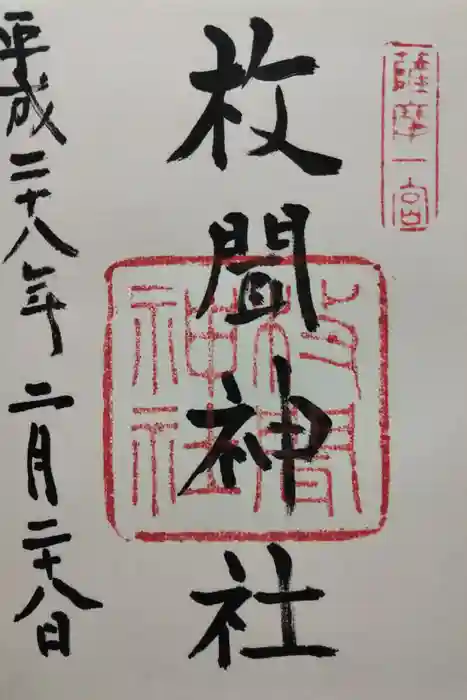 薩摩一宮
枚聞神社
枚聞
神社
平成二十八年二月二十八日